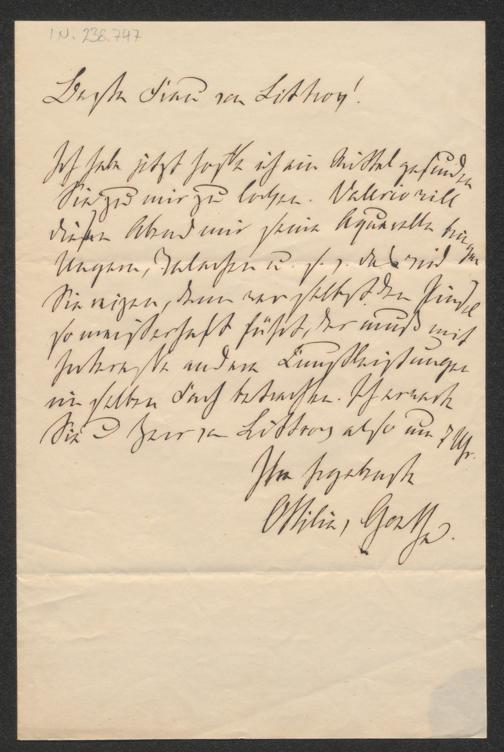 I.N. 238.747
Beste Frau von Littrow!
Ich habe jetzt hoffe ich ein Mittel gefunden
Sie zu mir zu locken. Valerio will
diesen Abend mir seine Aquarelle bringen
Ungarn, Walachen u. s. w. das wird
Sie reizen, denn wer selbst den Pinsel
so meisterhaft führt, der muß mit
Interesse andere Kunstleistungen
im selben Fach betrachten. Ich erwarte
Sie u Herr von Littrow also um 7 Uhr.
Ihre ergebenste
Ottilie, Goethe.